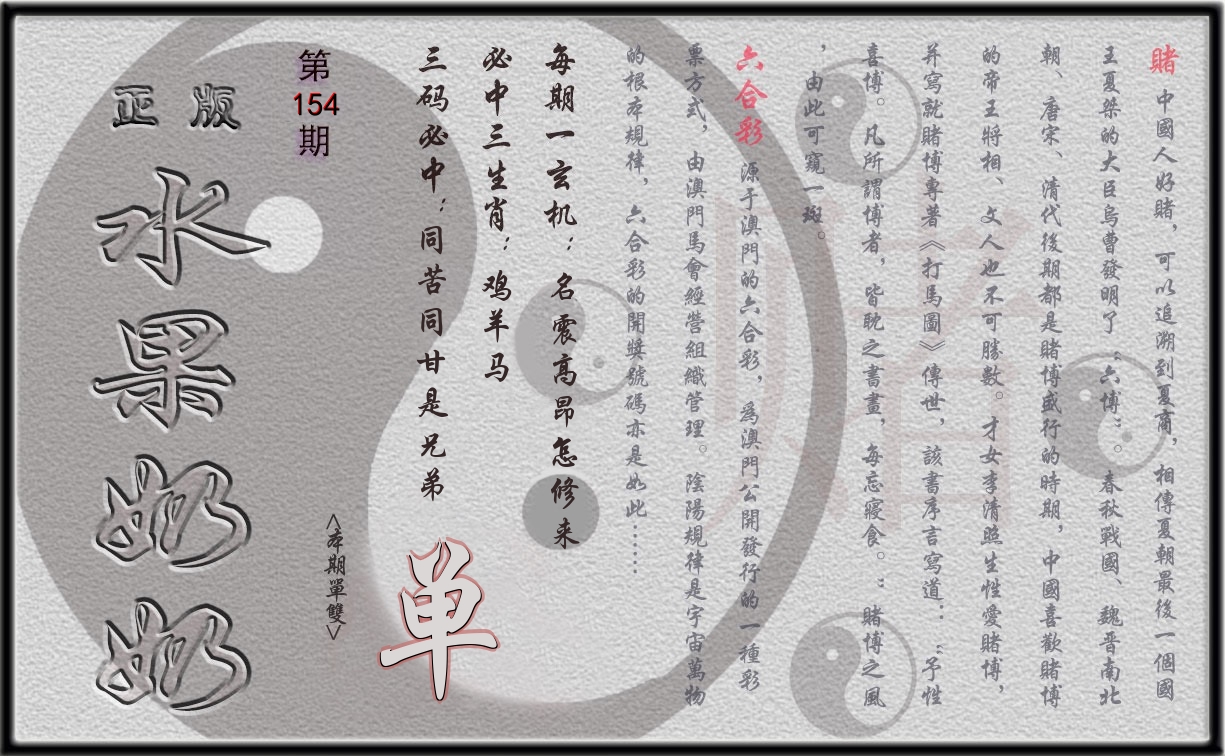 賭 中國人好賭，可以追溯到夏商，相傳夏朝最後一個國
王夏桀的大臣烏曹發明了“六博”。春秋戰國、魏晋南北
朝、唐宋、清代後期都是賭博盛行的時期，中國喜歡賭博
的帝王將相、文人也不可勝數。才女李清照生性愛賭博，
并寫就賭博專著《打馬圖》傳世，該書序言寫道：“予性
喜博。凡所謂博者，皆耽之書晝，每忘寢食。”賭博之風
，由此可窺一斑。
六合彩 源于澳門的六合彩，爲澳門公開發行的一種彩
票方式，由澳門馬會經營組織管理。陰陽規律是宇宙萬物
的根本規律，六合彩的開獎號碼亦是如此……
每期一玄机：名震高昂怎修来
必中三生肖：鸡羊马
三码必中：同苦同甘是兄弟
单
<本期單雙>
第
154
期
正版
水果奶奶
賭